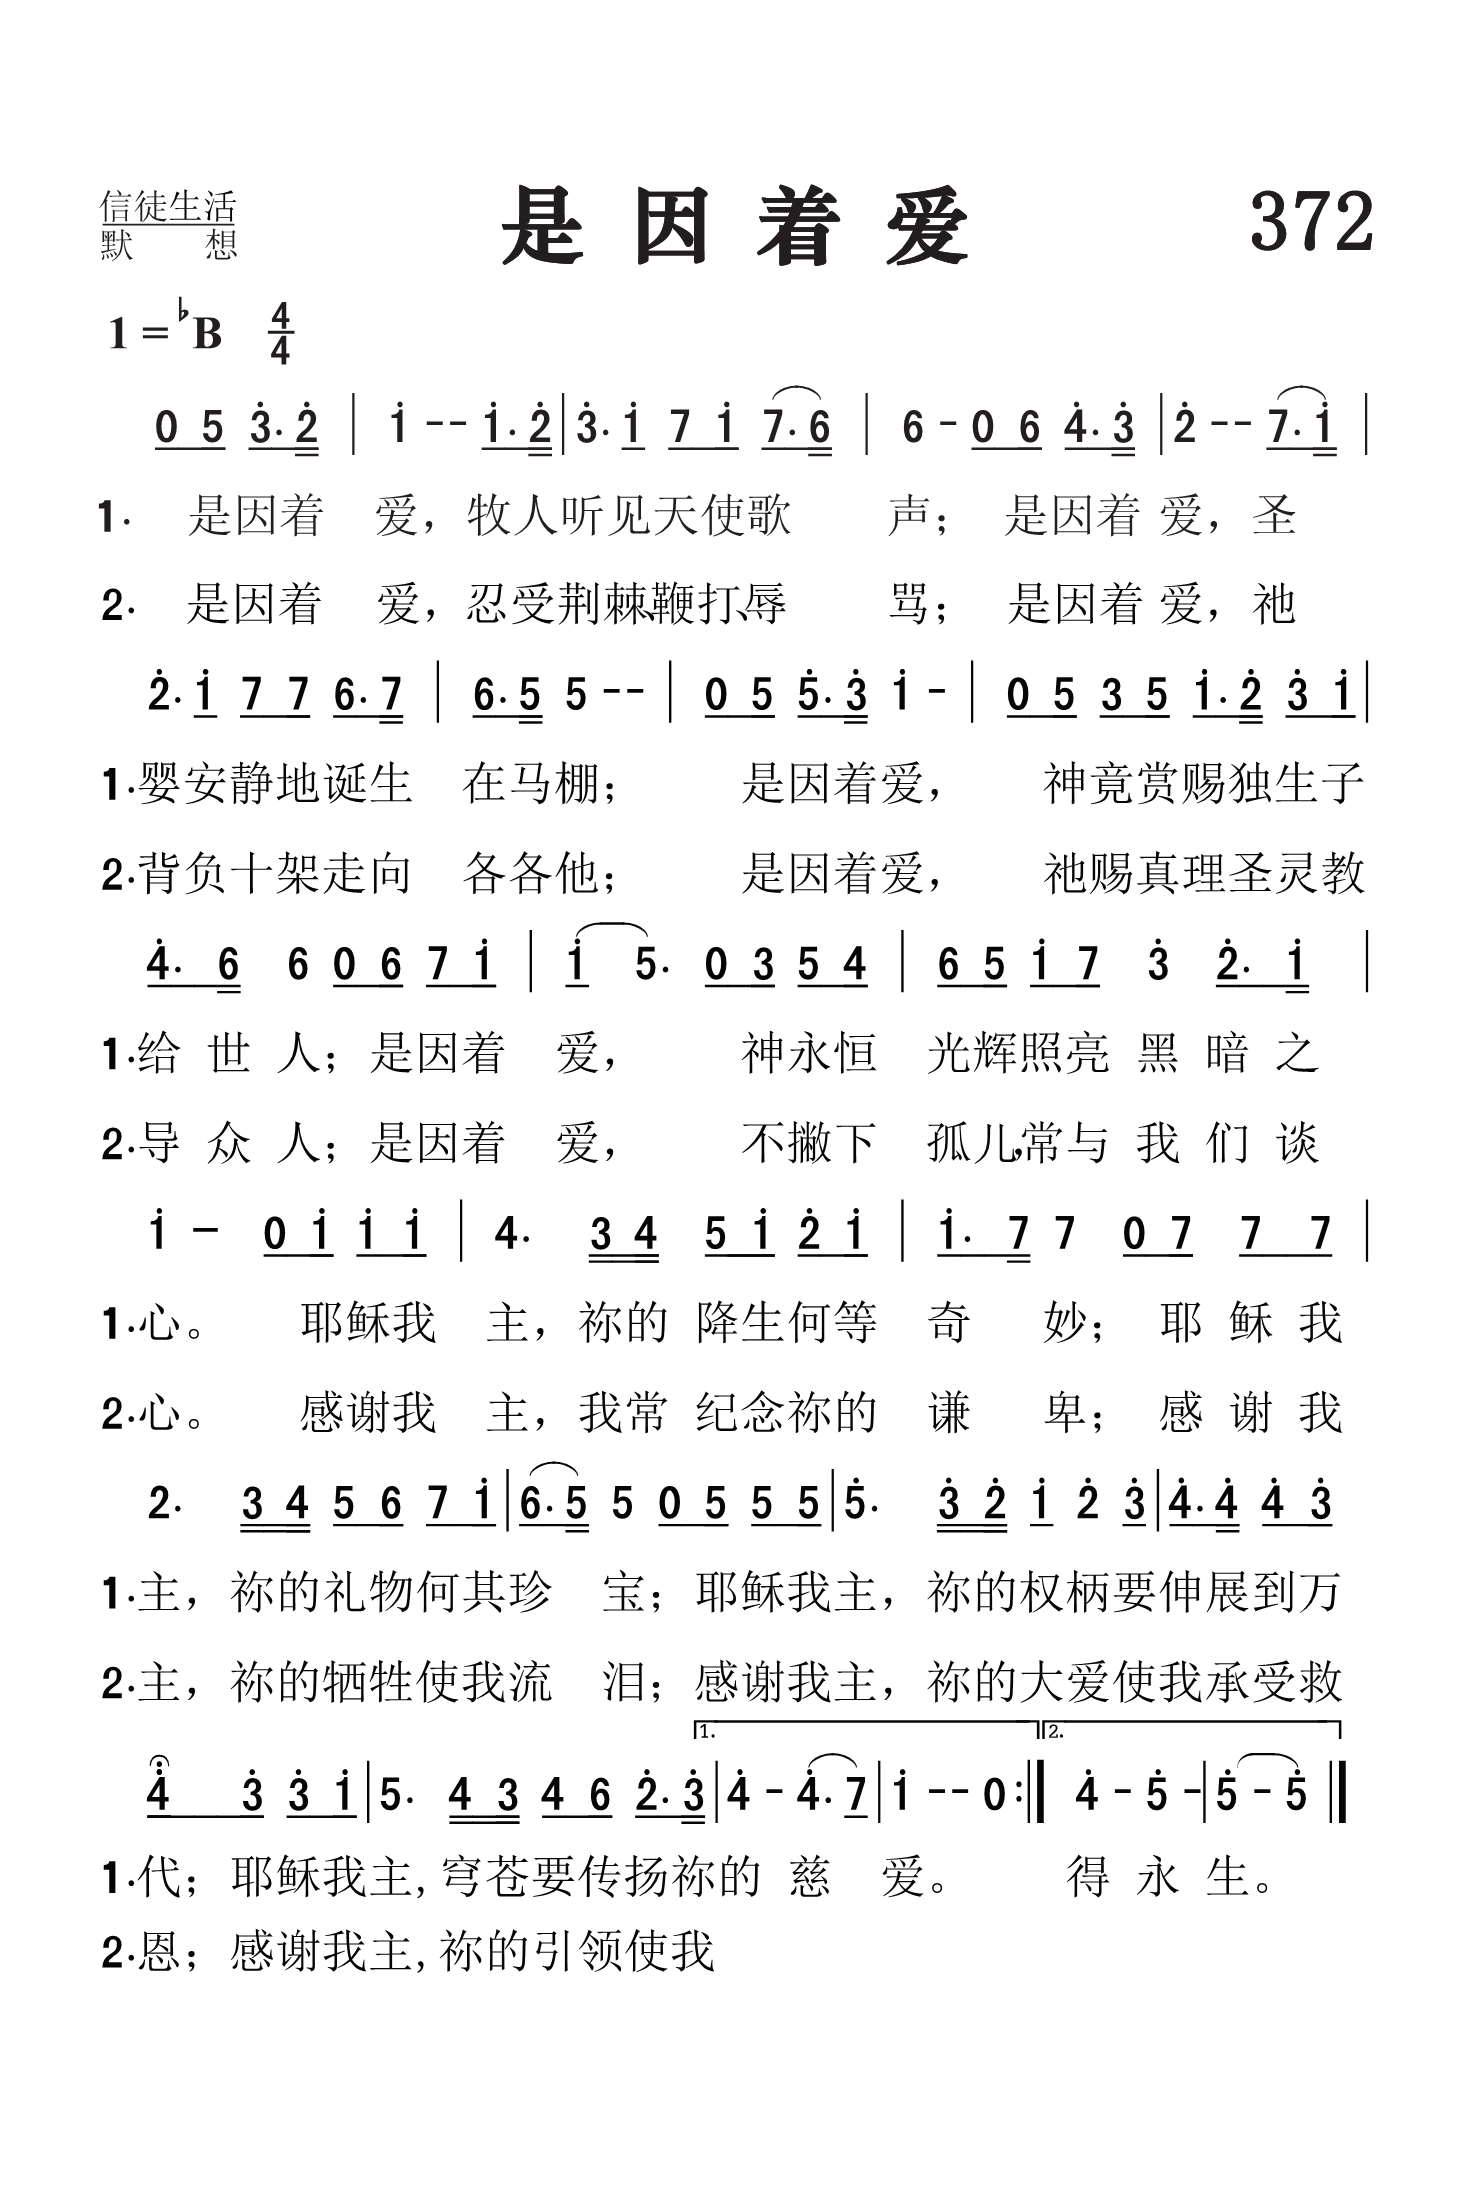 信徒生活
默 想
是因着爱
372
1=♭B 4/4
0 5 3̇. 2̇ | 1̇ - - 1̇. 2̇ | 3̇. 1̇ 7 1̇ 7. 6 | 6 - 0 6 4̇. 3̇ | 2̇ - - 7. 1̇ |
1. 是因着 爱，牧人听见天使歌 声； 是因着 爱，圣
2. 是因着 爱，忍受荆棘、鞭打、辱 骂； 是因着 爱，祂
2̇. 1̇ 7 7 6. 7 | 6. 5 5 - - | 0 5 5̇. 3̇ 1̇ - | 0 5 3 5 1̇. 2̇ 3̇ 1̇ |
1.婴安静地诞生 在马棚； 是因着爱， 神竟赏赐独生子
2.背负十架走向 各各他； 是因着爱， 祂赐真理圣灵教
4̇. 6 6 0 6 7 1̇ | 1̇ 5. 0 3 5 4 | 6 5 1̇ 7 3̇ 2̇. 1̇ |
1.给 世 人；是因着 爱， 神永恒 光辉照亮 黑 暗 之
2.导 众 人；是因着 爱， 不撇下 孤儿，常与 我 们 谈
1̇ - 0 1̇ 1̇ 1̇ | 4. 3 4 5 1̇ 2̇ 1̇ | 1̇. 7 7 0 7 7 7 |
1.心。 耶稣我 主，祢的 降生何等 奇 妙； 耶 稣 我
2.心。 感谢我 主，我常 纪念祢的 谦 卑； 感 谢 我
2. 3 4 5 6 7 1̇ | 6. 5 5 0 5 5 5 | 5̇. 3̇ 2̇ 1̇ 2̇ 3̇ | 4̇. 4̇ 4̇ 3̇
1.主，祢的礼物何其珍 宝；耶稣我主，祢的权柄要伸展到万
2.主，祢的牺牲使我流 泪；感谢我主，祢的大爱使我承受救
1. 2.
4̇ 3̇ 3̇ 1̇ | 5. 4 3 4 6 2̇. 3̇ | 4̇ - 4̇. 7 | 1̇ - - 0 :‖ 4̇ - 5̇ - | 5̇ - 5̇ ‖
1.代；耶稣我主,穹苍要传扬祢的 慈 爱。 得 永 生。
2.恩；感谢我主,祢的引领使我